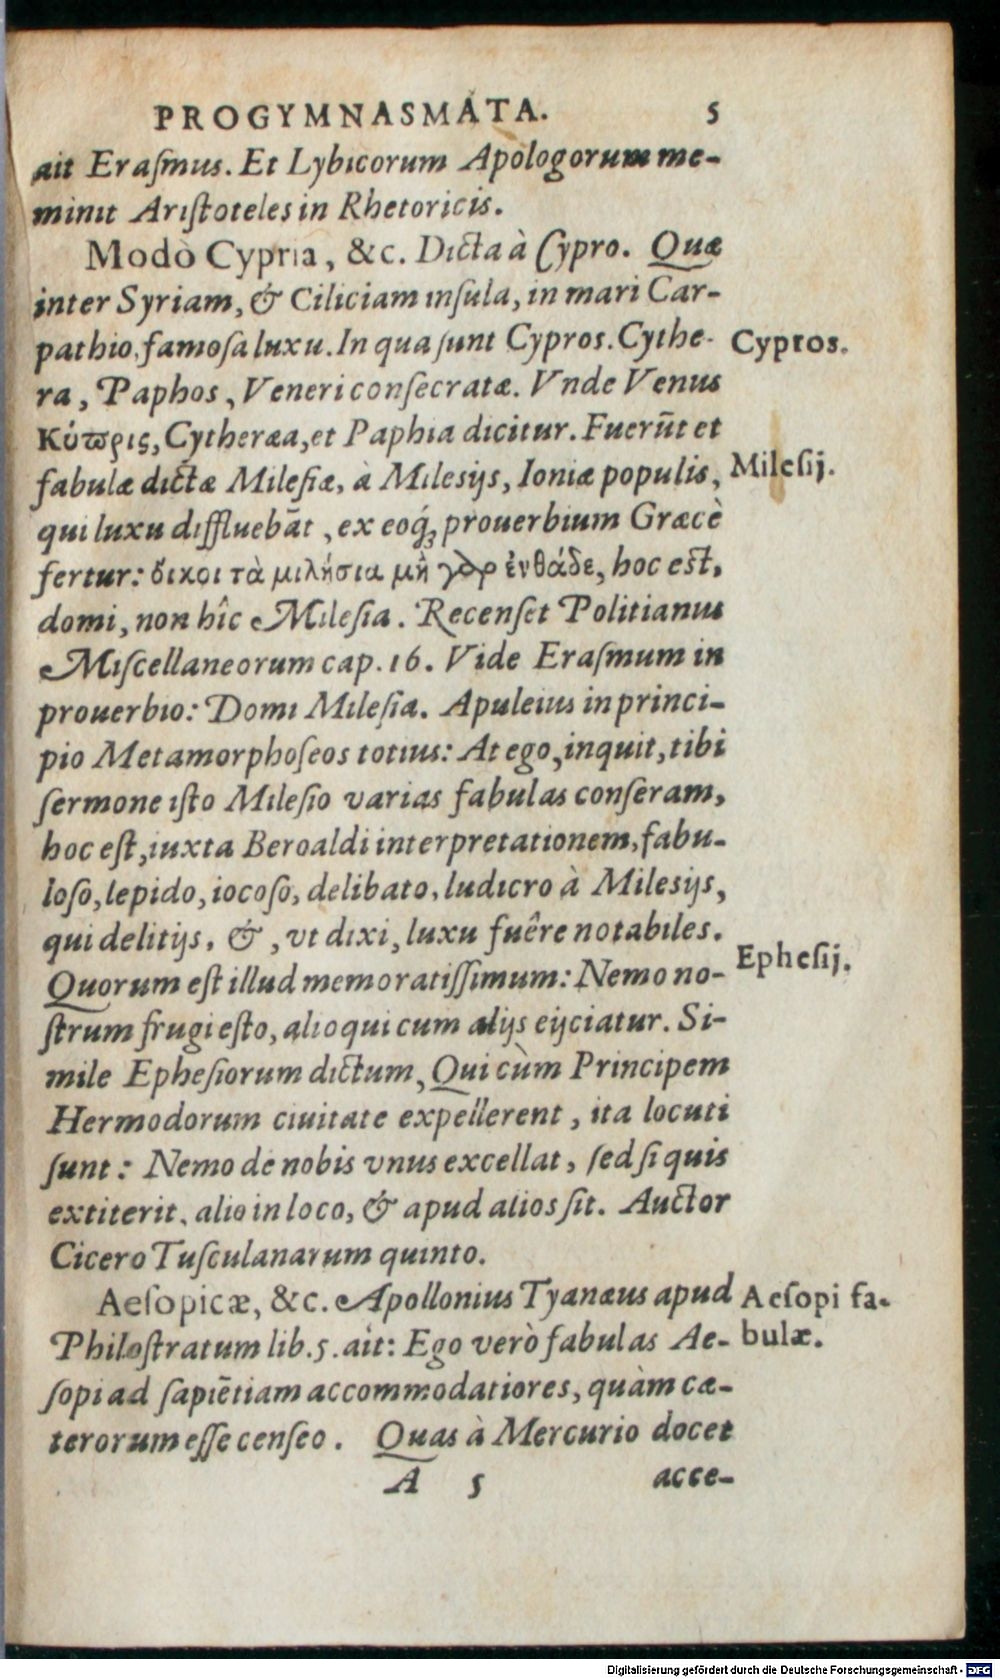 PROGYMNASMATA. 5
ait Eraſmus. Et Lybicorum Apologorum me-
minit Ariſtoteles in Rhetoricis.
Modò Cypria, &c. Dicta à Cypro. Quæ
inter Syriam, & Ciliciam inſula, in mari Car-
pathio, famoſa luxu. In qua ſunt Cypros. Cythe-
Cypros.
ra, Paphos, Veneri conſecratæ. Vnde Venus
Κύϖρις, Cytheræa, et Paphia dicitur. Fuerũt et
fabulæ dictæ Mileſiæ, à Milesijs, Ioniæ populis,
Mileſij.
qui luxu diffluebãt, ex eoq́ꝫ prouerbium Græcè
fertur: ὄικοι τὰ μιλήσια μὴ γὰρ ἐνθάδε, hoc est,
domi, non hîc Mileſia. Recenſet Politianus
Miſcellaneorum cap. 16. Vide Eraſmum in
prouerbio: Domi Mileſia. Apuleius in princi-
pio Metamorphoſeos totius: At ego, inquit, tibi
ſermone iſto Mileſio varias fabulas conſeram,
hoc eſt, iuxta Beroaldi interpretationem, fabu-
loſo, lepido, iocoſo, delibato, ludicro à Milesijs,
qui delitijs, &, vt dixi, luxu fuêre notabiles.
Epheſij.
Quorum eſt illud memoratiſſimum: Nemo no-
ſtrum frugi eſto, alioqui cum alijs eijciatur. Si-
mile Epheſiorum dictum, Qui cùm Principem
Hermodorum ciuitate expellerent, ita locuti
ſunt: Nemo de nobis vnus excellat, ſed ſi quis
extiterit, alio in loco, & apud alios ſit. Auctor
Cicero Tuſculanarum quinto.
Aeſopicæ, &c. Apollonius Tyanæus apud
Aeſopi fa-
Philoſtratum lib. 5. ait: Ego verò fabulas Ae-
bulæ.
ſopi ad ſapiẽtiam accommodatiores, quàm cæ-
terorum eſſe cenſeo. Quas à Mercurio docet
A 5 acce-
Digitalisierung gefördert durch die Deutsche Forschungsgemeinschaft - DFG